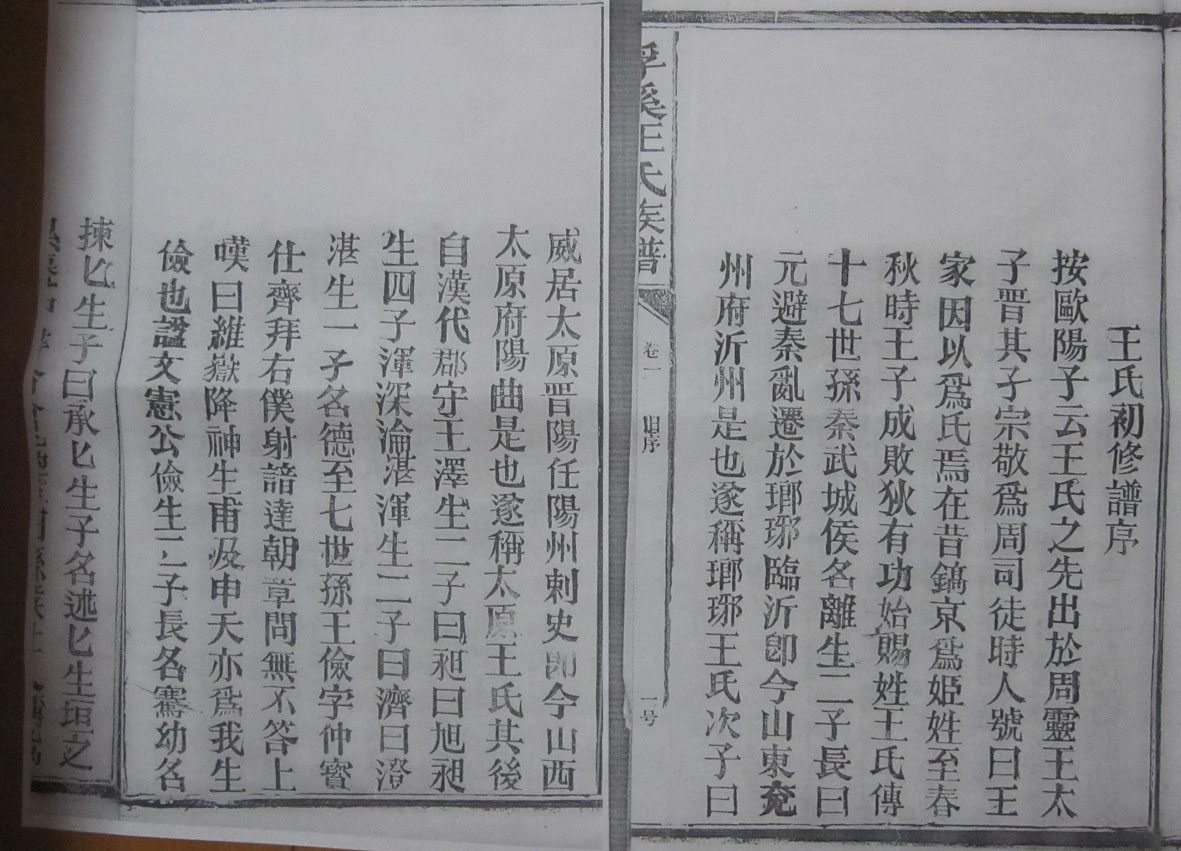 王氏初修譜序
按歐陽子云王氏之先出於周靈王太
子晋其子宗敬爲周司徒時人號曰王
家因以爲氏焉在昔鎬京爲姬姓至春
秋時王子成敗狄有功始賜姓王氏傳
十七世孫秦武城侯名離生二子長曰
元避秦亂遷於瑯琊臨沂卽今山東兖
州府沂州是也遂稱瑯琊王氏次子曰
溪王氏族譜
卷一
旧序
一号
威居太原晋陽任陽州刺史卽今山西
太原府陽曲是也遂稱太原王氏其後
自漢代郡守王澤生二子曰昶曰旭昶
生四子渾深淪湛渾生二子曰濟曰澄
湛生一子名德至七世孫王儉字仲寳
仕齊拜右僕射諳達朝章問無不答上
嘆曰維嶽降神生甫及申天亦爲我生
儉也諡文憲公儉生二子長名騫幼名
揀匕生子曰承匕生子名述匕生垣之